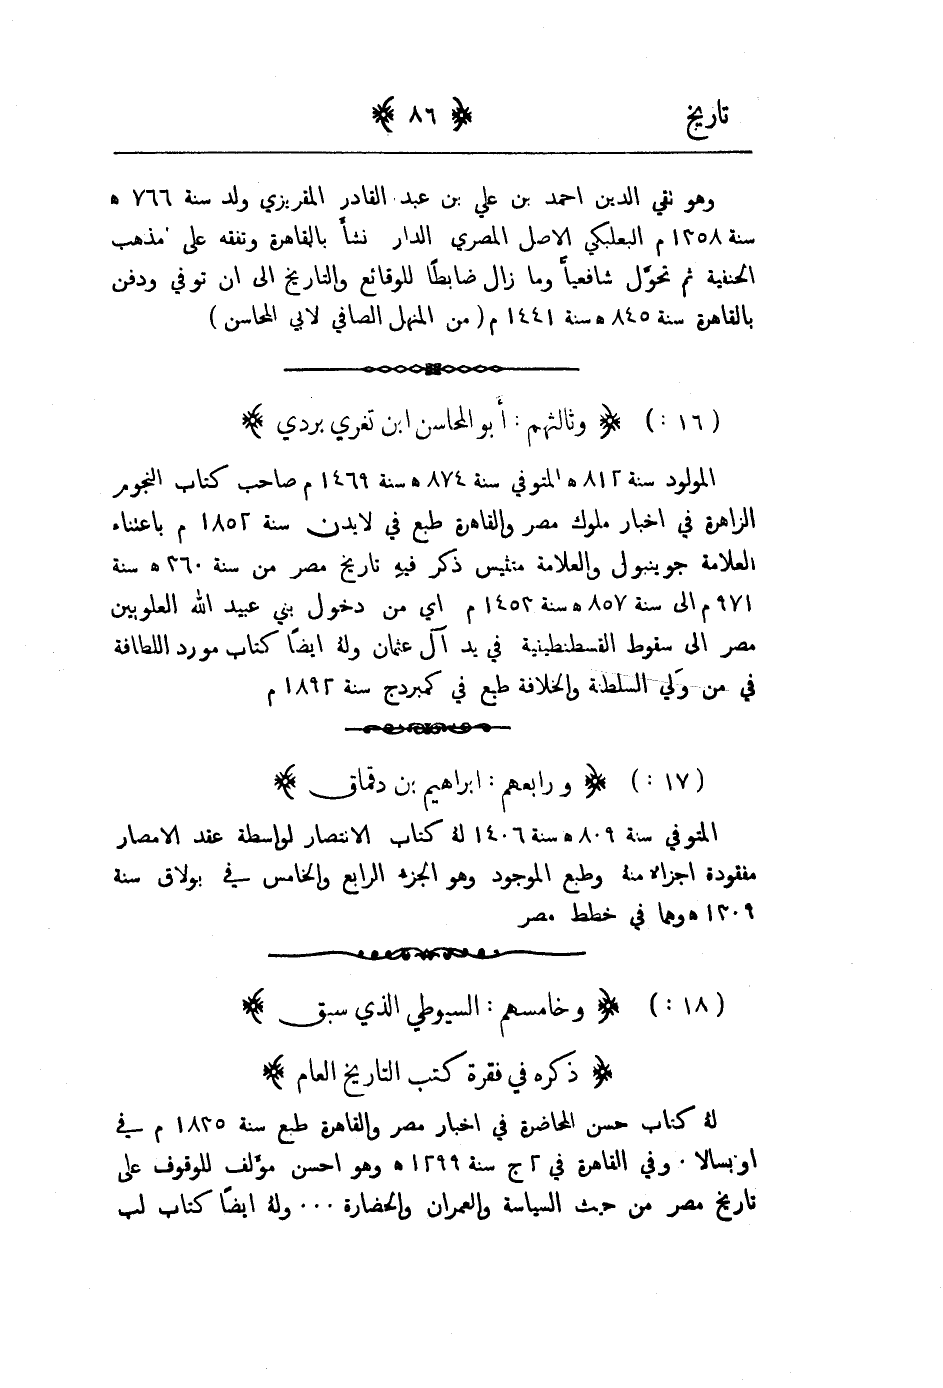 تاريخ ﴿ ٨٦ ﴾
وهو تقي الدين احمد بن علي بن عبد القادر المقريزي ولد سنة ٧٦٦ ه
سنة ١٣٥٨ م البعلبكي الاصل المصري الدار نشأ بالقاهرة وتفقه على مذهب
الحنفية ثم تحوَّل شافعياً وما زال ضابطًا للوقائع والتاريخ الى ان توفي ودفن
بالقاهرة سنة ٨٤٥ ه سنة ١٤٤١ م ( من المنهل الصافي لابي المحاسن )
( ١٦ : ) ﴿ وثالثهم : أبو المحاسن ابن تغري بردي ﴾
المولود سنة ٨١٢ ه المتوفي سنة ٨٧٤ ه سنة ١٤٦٩ م صاحب كتاب النجوم
الزاهرة في اخبار ملوك مصر والقاهرة طبع في لايدن سنة ١٨٥٢ م باعتناء
العلامة جوينبول والعلامة متثيس ذكر فيهِ تاريخ مصر من سنة ٣٦٠ ه سنة
٩٧١ م الى سنة ٨٥٧ ه سنة ١٤٥٣ م اي من دخول بني عبيد الله العلويين
مصر الى سقوط القسطنطينية في يد آل عثمان ولهُ ايضًا كتاب مورد اللطافة
في من وَلي السلطنة والخلافة طبع في كمبردج سنة ١٨٩٢ م
( ١٧ : ) ﴿ ورابعهم : ابراهيم بن دقماق ﴾
المتوفي سنة ٨٠٩ ه سنة ١٤٠٦ لهُ كتاب الانتصار لواسطة عقد الامصار
مفقودة اجزاء منهُ وطبع الموجود وهو الجزء الرابع والخامس في بولاق سنة
١٣٠٩ ه وهما في خطط مصر
( ١٨ : ) ﴿ وخامسهم : السيوطي الذي سبق ﴾
﴿ ذكره في فقرة كتب التاريخ العام ﴾
لهُ كتاب حسن المحاضرة في اخبار مصر والقاهرة طبع سنة ١٨٣٥ م في
اوبسالا · وفي القاهرة في ٢ ج سنة ١٢٩٩ ه وهو احسن مؤَلف للوقوف على
تاريخ مصر من حيث السياسة والعمران والحضارة ··· ولهُ ايضًا كتاب لب